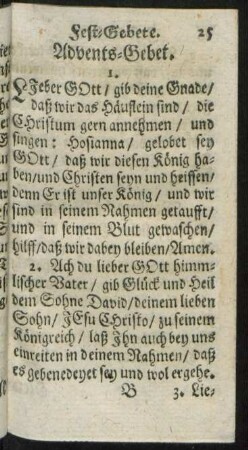 Fest-Gebete. 25
Advents-Gebet.
1.
LJeber GOtt / gib deine Gnade /
daß wir das Häuflein sind / die
CHristum gern annehmen / und
singen: Hosianna / gelobet sey
GOtt / daß wir diesen König ha-
ben / und Christen seyn und heissen /
denn Er ist unser König / und wir
sind in seinem Nahmen getaufft /
und in seinem Blut gewaschen /
hilff / daß wir dabey bleiben / Amen.
2. Ach du lieber GOtt himm-
lischer Vater / gib Glück und Heil
dem Sohne David / deinem lieben
Sohn / JEsu CHristo / zu seinem
Königreich / laß Jhn auch bey uns
einreiten in deinem Nahmen / daß
es gebenedeyet sey und wol ergehe.
B 3. Lie-